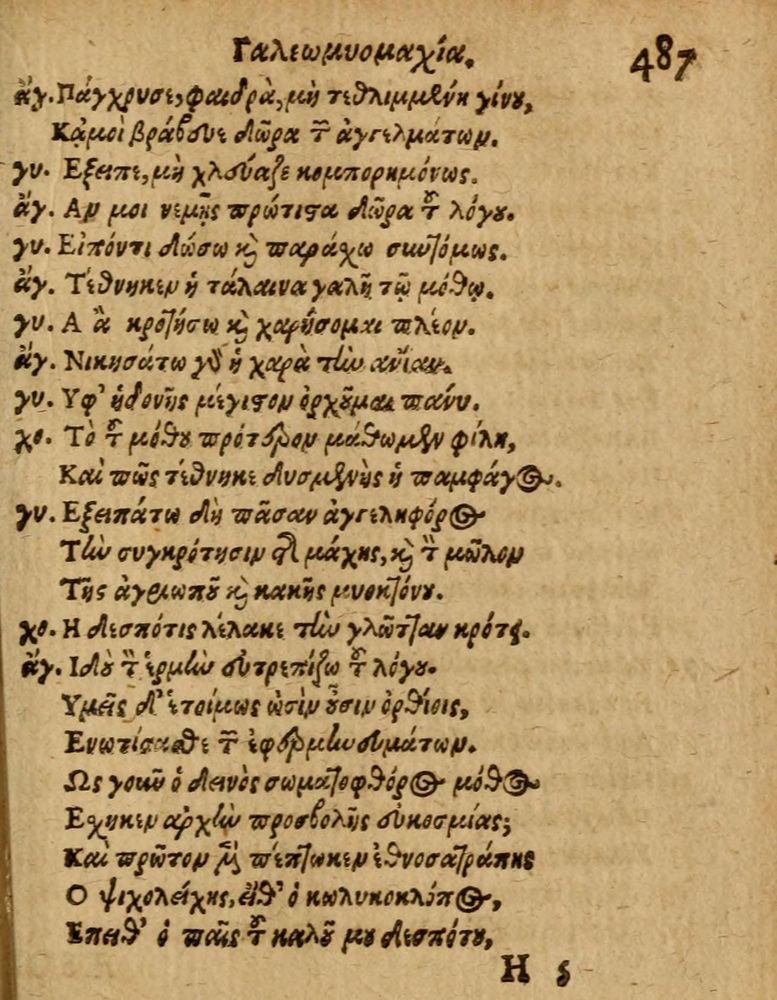 Γαλεωμυομαχία. 487
ἄγ. Πάγχρυσε, φαιδρὰ, μὴ τεθλιμμένη γίνου,
Κᾀμοὶ βράβευε δῶρα τῶν ἀγγελμάτων.
γυ. Εξειπε, μὴ χλεύαζε κομπορημόνως.
ἄγ. Αν μοι νεμῇς πρώτιστα δῶρα τοῦ λόγου.
γυ. Εἰπόντι δώσω καὶ παράχω συντόμως.
ἄγ. Τέθνηκεν ἡ τάλαινα γαλῆ τῷ μόθῳ.
γυ. Α ἃ κροτήσω καὶ χαρήσομαι πλέον.
ἄγ. Νικησάτω γὰρ ἡ χαρὰ τὴν ἀνίαν.
γυ. Υφ' ἡδονῆς μέγιστον ὀρχοῦμαι πάνυ.
χο. Τὸ τοῦ μόθου πρότερον μάθωμεν φίλη,
Καὶ πῶς τέθνηκε δυσμενὴς ἡ παμφάγος.
γυ. Εξειπάτω δὴ πᾶσαν ἀγγεληφόρος
Τὴν συγκρότησιν τῆς μάχης, καὶ τὸν μῶλον
Τῆς ἀγριωποῦ καὶ κακῆς μυοκτόνου.
χο. Η δεσπότις λέλακε τὴν γλῶτταν κρότει.
ἄγ. Ιδοὺ τὸν εἱρμὸν εὐτρεπίζω τοῦ λόγου.
Υμεῖς δ' ἑτοίμως ὠσὶν οὖσιν ὀρθίοις,
Ενωτίσασθε τῶν ἐφερμηνευμάτων.
Ως γοῦν ὁ δεινὸς σωματοφθόρος μόθος
Εχηκεν ἀρχὴν προσβολῆς εὐκοσμίας;
Καὶ πρῶτον μὲν πέπτωκεν ἐθνοσατράπης
Ο ψιχολείχης, εἶθ' ὁ κωλυκοκλόπος,
Επειθ' ὁ παῖς τοῦ καλοῦ μου δεσπότου,
Η 5